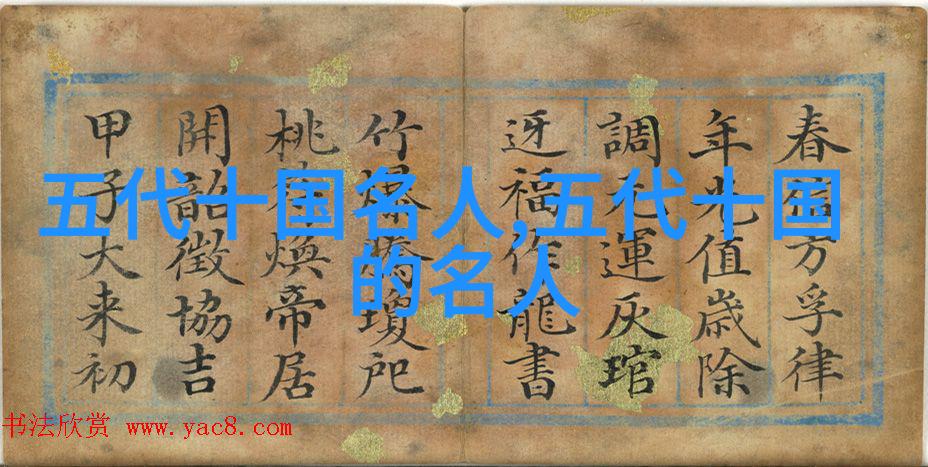 春方孚律
年光值歲除
調元運灰琯
迓福作龍書
竹爆瓊戺
桃煥帝居
開韶徵協吉
甲子大来初
五代十国名人,五代十国
的名人
书法欣赏 www.yac8.com